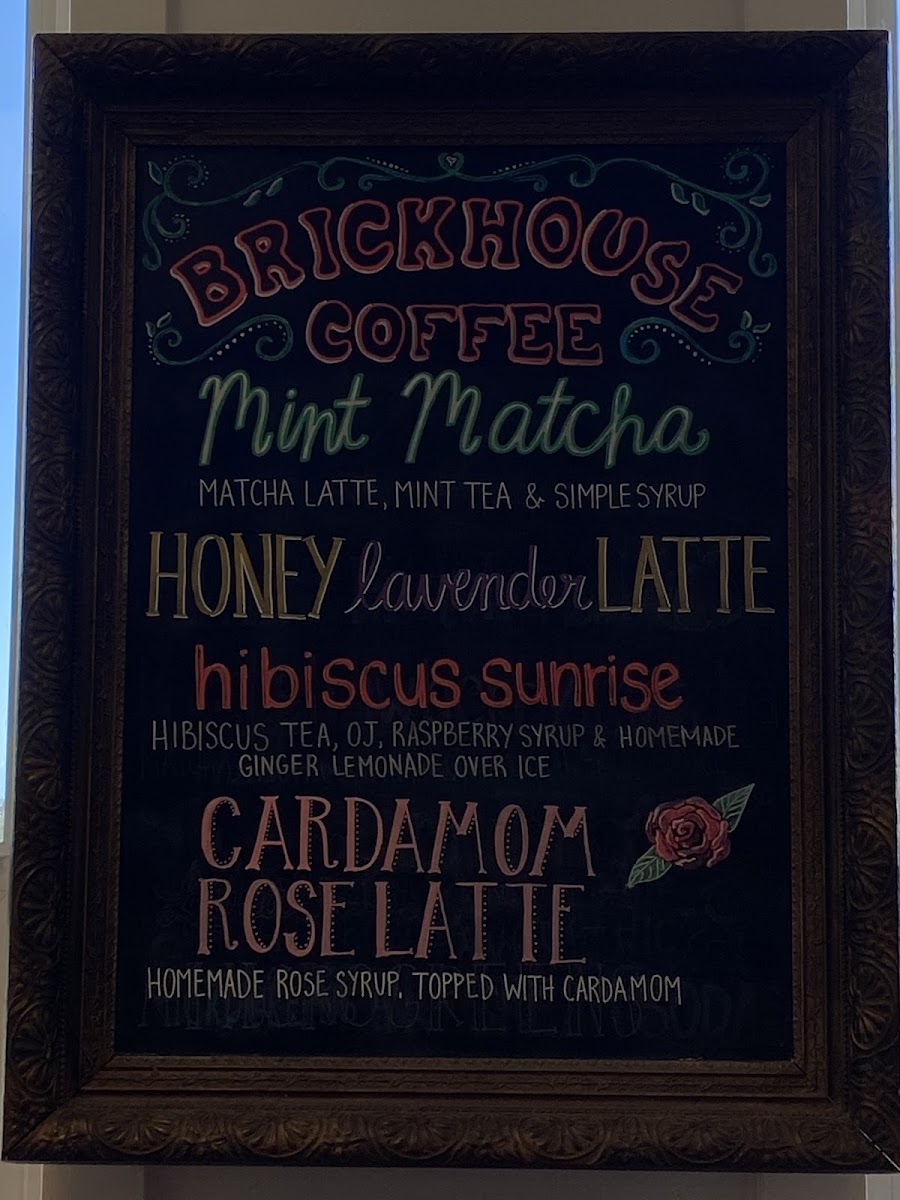 BRICKHOUSE
COFFEE
Mint Matcha
MATCHA LATTE, MINT TEA & SIMPLE SYRUP
HONEY lavender LATTE
hibiscus sunrise
HIBISCUS TEA, OJ, RASPBERRY SYRUP & HOMEMADE
GINGER LEMONADE OVER ICE
CARDAMOM
ROSE LATTE
HOMEMADE ROSE SYRUP. TOPPED WITH CARDAMOM